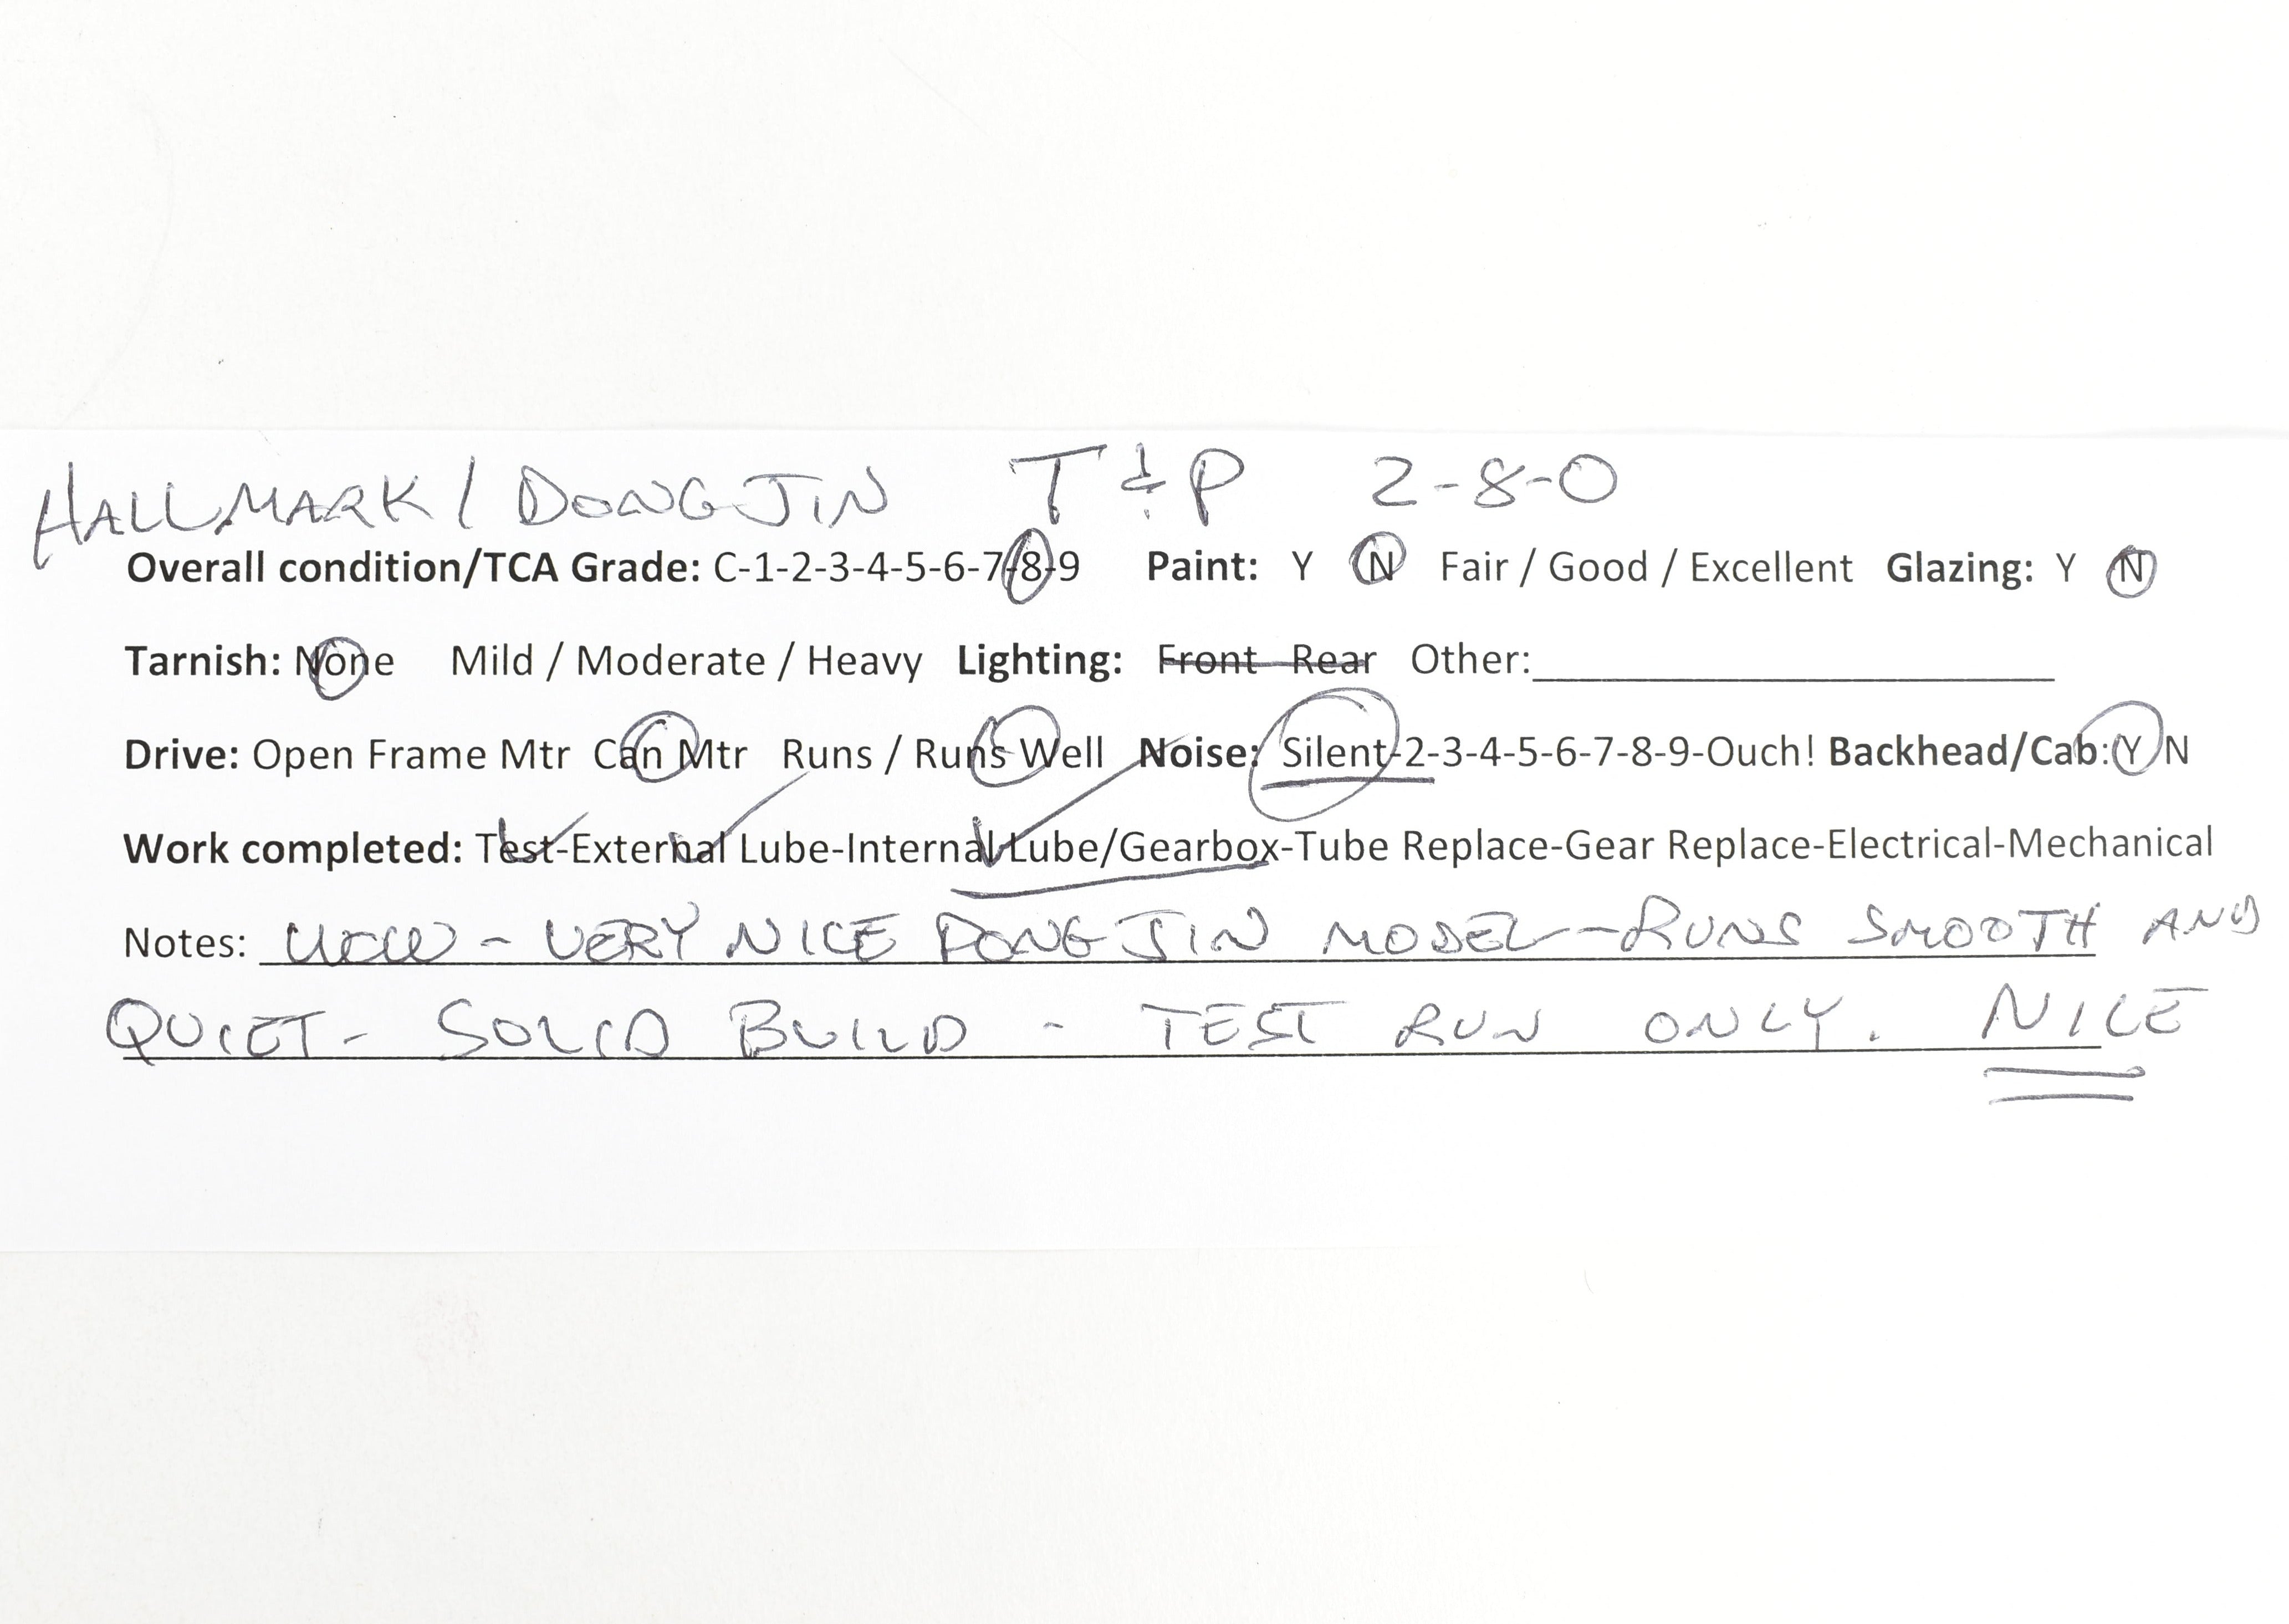 HALLMARK / DONG JIN T & P 2-8-0
Overall condition/TCA Grade: C-1-2-3-4-5-6-7-8-9 Paint: Y N Fair / Good / Excellent Glazing: Y N
Tarnish: None Mild / Moderate / Heavy Lighting: Front Rear Other:
Drive: Open Frame Mtr Can Mtr Runs / Runs Well Noise: Silent-2-3-4-5-6-7-8-9-Ouch! Backhead/Cab: Y N
Work completed: Test-External Lube-Internal Lube/Gearbox-Tube Replace-Gear Replace-Electrical-Mechanical
Notes: WOW - VERY NICE DONG JIN MODEL - RUNS SMOOTH AND
QUIET - SOLID BUILD - TEST RUN ONLY. NICE